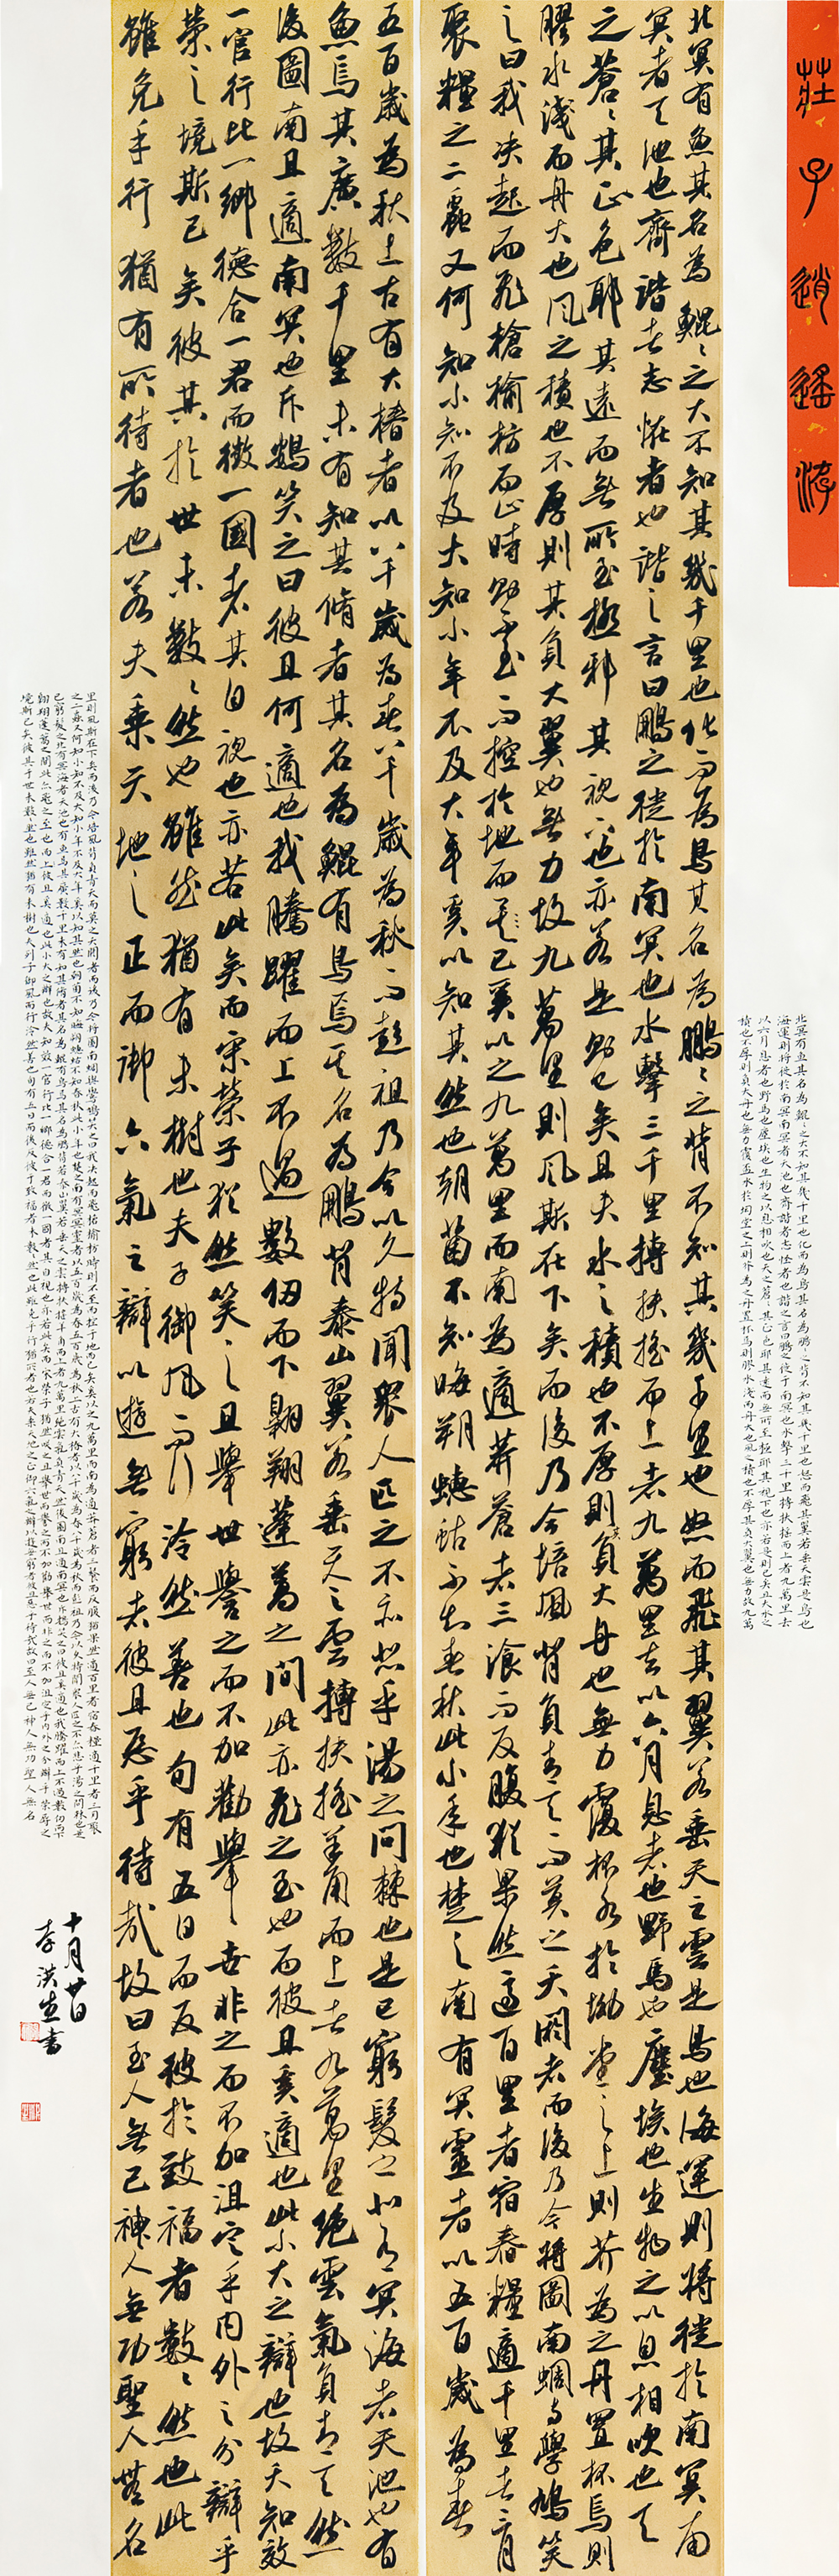 莊子逍遙游
北冥有魚其名為鯤〻之大不知其幾千里也化而為鳥其名為鵬〻之背不知其幾千里也怒而飛其翼若垂天雲是鳥也
海運則將徙於南冥南冥者天池也齊諧者志怪者也諧之言曰鵬之徙于南冥也水擊三千里摶扶搖而上者九萬里去
以六月息者也野馬也塵埃也生物之以息相吹也天之蒼〻其正色邪其遠而無所至極邪其視下也亦若是則已矣且夫水之
積也不厚則負大舟也無力覆盃水於坳堂之上則芥為之舟置杯焉則膠水淺而舟大也風之積也不厚其負大翼也無力故九萬
北冥有魚其名為鯤〻之大不知其幾千里也化而為鳥其名為鵬〻之背不知其幾千里也怒而飛其翼若垂天之雲是鳥也海運則將徙於南冥南
冥者天池也齊諧者志怪者也諧之言曰鵬之徙於南冥也水擊三千里摶扶搖而上者九萬里去以六月息者也野馬也塵埃也生物之以息相吹也天
之蒼〻其正色耶其遠而無所至極邪其視下也亦若是則已矣且夫水之積也不厚則負大舟也無力覆杯水於坳堂之上則芥為之舟置杯焉則
膠水淺而舟大也風之積也不厚則其負大翼也無力故九萬里則風斯在下矣而後乃今培風背負青天而莫之夭閼者而後乃今將圖南蜩與學鳩笑
之曰我決起而飛槍榆枋而止時則不至而控於地而已矣奚以之九萬里而南為適莽蒼者三湌而反腹猶果然適百里者宿舂糧適千里者三月
聚糧之二蟲又何知小知不及大知小年不及大年奚以知其然也朝菌不知晦朔蟪蛄不知春秋此小年也楚之南有冥靈者以五百歲為春
五百歲為秋上古有大椿者以八千歲為春八千歲為秋而彭祖乃今以久特聞眾人匹之不亦悲乎湯之問棘也是已窮髮之北有冥海者天池也有
魚焉其廣數千里未有知其脩者其名為鯤有鳥焉其名為鵬背泰山翼若垂天之雲摶扶搖羊角而上者九萬里絕雲氣負青天然
後圖南且適南冥也斥鴳笑之曰彼且何適也我騰躍而上不過數仞而下翱翔蓬蒿之間此亦飛之至也而彼且奚適也此小大之辯也故夫知效
一官行比一鄉德合一君而徵一國者其自視也亦若此矣而宋榮子猶然笑之且舉世譽之而不加勸舉〻世非之而不加沮定乎內外之分辯乎
榮之境斯已矣彼其於世未數〻然也雖然猶有未樹也夫子御風而行泠然善也旬有五日而反彼於致福者數〻然也此
雖免乎行猶有所待者也若夫乘天地之正而御六氣之辯以遊無窮者彼且惡乎待哉故曰至人無己神人無功聖人無名
里則風斯在下矣而後乃今培風背負青天而莫之夭閼者而後乃今將圖南蜩與學鳩笑之曰我決起而飛搶榆枋時則不至而控于地而已矣奚以之九萬里而南為適莽蒼者三餐而反腹猶果然適百里者宿舂糧適千里者三月聚
之二蟲又何知小知不及大知小年不及大年奚以知其然也朝菌不知晦朔蟪蛄不知春秋此小年也楚之南有冥靈者以五百歲為春五百歲為秋上古有大椿者以八千歲為春八千歲為秋而彭祖乃今以久特聞眾人匹之不亦悲乎湯之問棘也是
已窮髮之北有冥海者天池也有魚焉其廣數千里未有知其脩者其名為鯤有鳥焉其名為鵬背若泰山翼若垂天之雲摶扶搖羊角而上者九萬里絕雲氣負青天然後圖南且適南冥也斥鴳笑之曰彼且奚適也我騰躍而上不過數仞而下
翱翔蓬蒿之間此亦飛之至也而上彼且奚適也此小大之辯也故夫知效一官行比一鄉德合一君而徵一國者其自視也亦若此矣而宋榮子猶然笑之且舉世而譽之而不加勸舉世而非之而不加沮定乎內外之分辯乎榮辱之
境斯已矣彼其于世未數〻然也雖然猶有未樹也夫列子御風而行泠然善也旬有五日而後反彼于致福者未數〻然也此雖免乎行猶所者也若夫乘天地之正御六氣之辯以遊無窮者彼且惡乎待哉故曰至人無己神人無功聖人無名
十月廿日
李洪生書